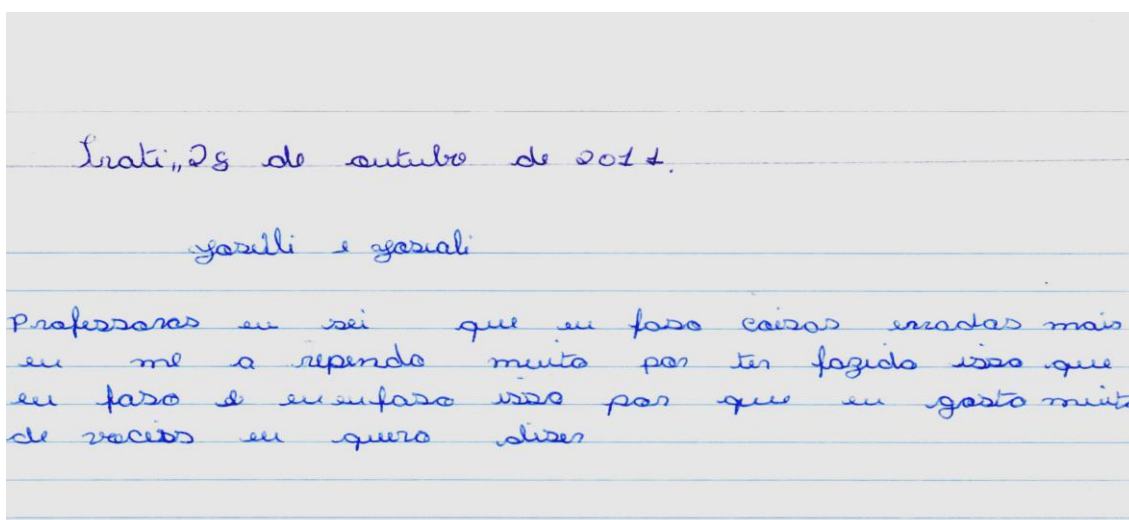 Irati,, 28 de outubro de 2011.
yoselli e yosiali
Professoras eu sei que eu faso coisas erradas mais
eu me a rependo muito por ter fazido isso que
eu faso e eueufaso isso por que eu gosto muito
de voceis eu quero diser